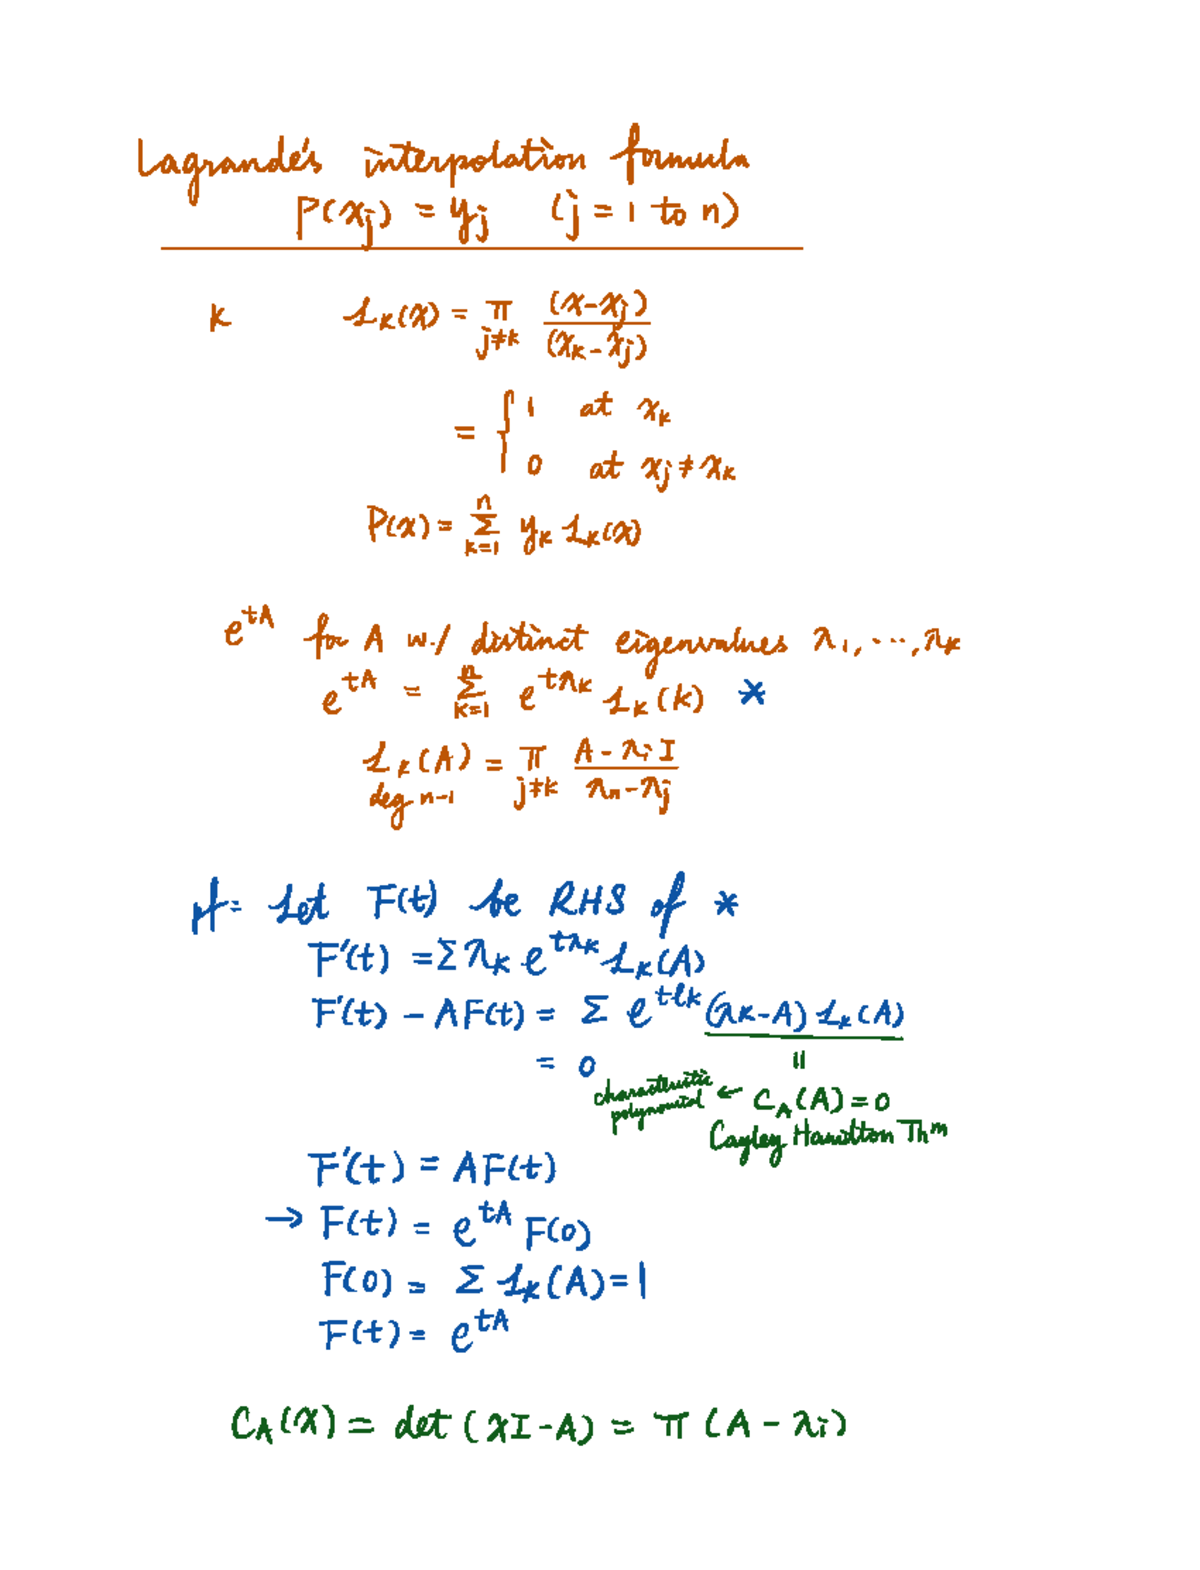 Lagrande's interpolation formula
P(xⱼ) = yⱼ (j = 1 to n)
k Lₖ(x) = π_{j≠k} (x-xⱼ)/(xₖ-xⱼ)
= { 1 at xₖ
0 at xⱼ ≠ xₖ
P(x) = Σ_{k=1}^{n} yₖ Lₖ(x)
e^{tA} for A w./ distinct eigenvalues λ₁, ..., λₖ
e^{tA} = Σ_{k=1}^{n} e^{tλₖ} Lₖ(k) *
Lₖ(A) = π_{j≠k} (A - λᵢI)/(λₙ-λⱼ)
deg n-1
pf: Let F(t) be RHS of *
F'(t) = Σ λₖ e^{tλₖ} Lₖ(A)
F'(t) - AF(t) = Σ e^{tlk} (λk-A) Lₖ(A)
= 0 ||
characteristic polynomial ← C_A(A) = 0
Cayley Hamilton Thᵐ
F'(t) = AF(t)
→ F(t) = e^{tA} F(0)
F(0) = Σ Lₖ(A) = 1
F(t) = e^{tA}
C_A(x) = det(xI-A) = π(A - λi)